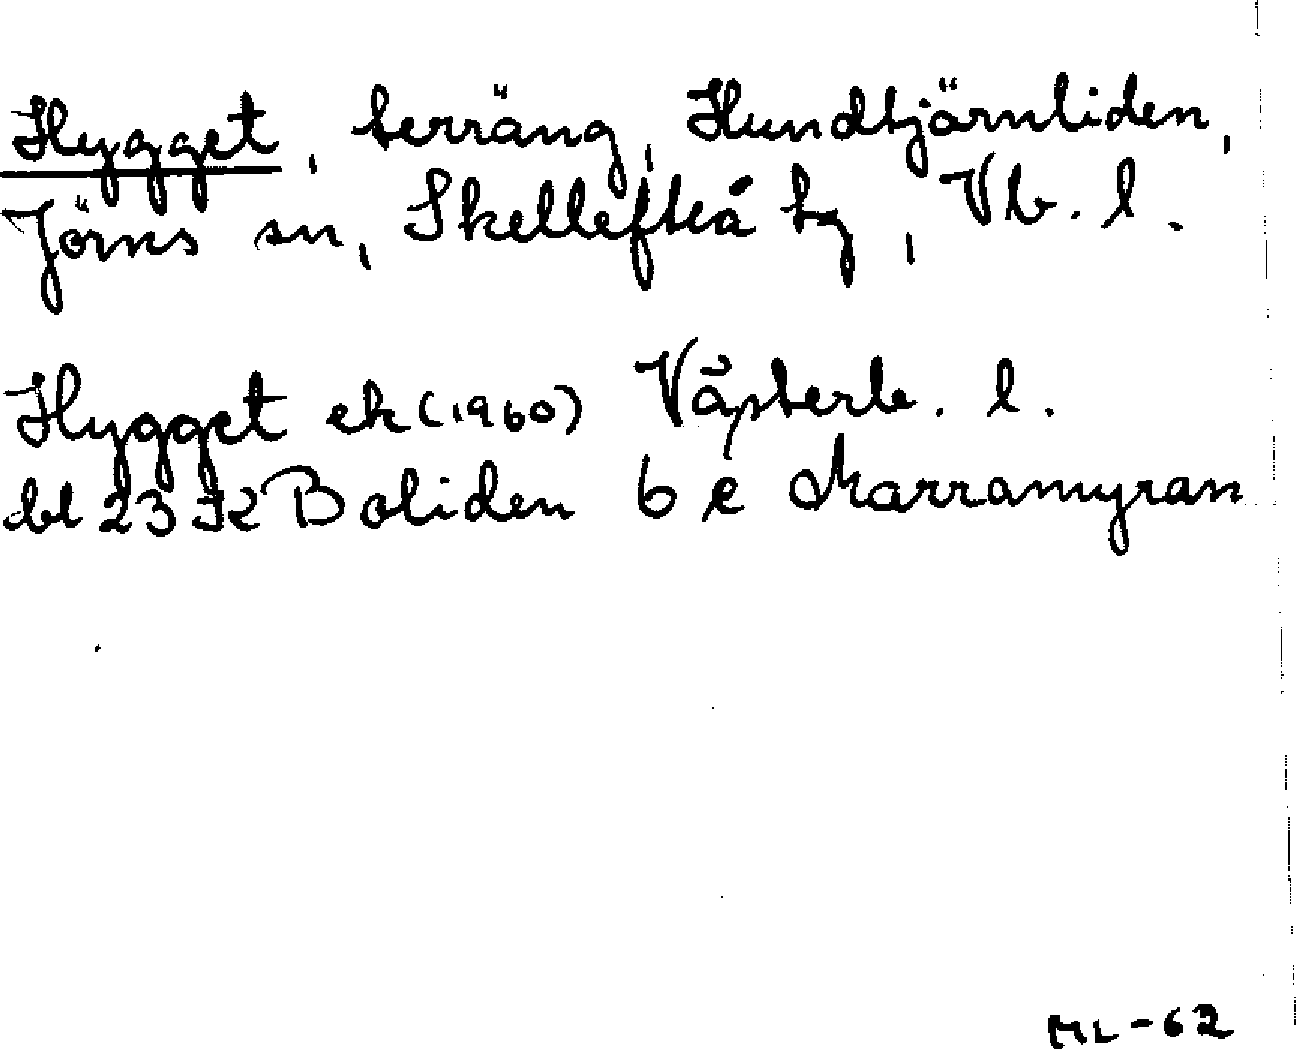 Hygget, terräng, Hundtjärnliden,
Jörns sn, Skellefteå tg, Vb. l.
Hygget ek (1960) Västerb. l.
bl 23 J2 Boliden 6 e Marramyran
ML-62